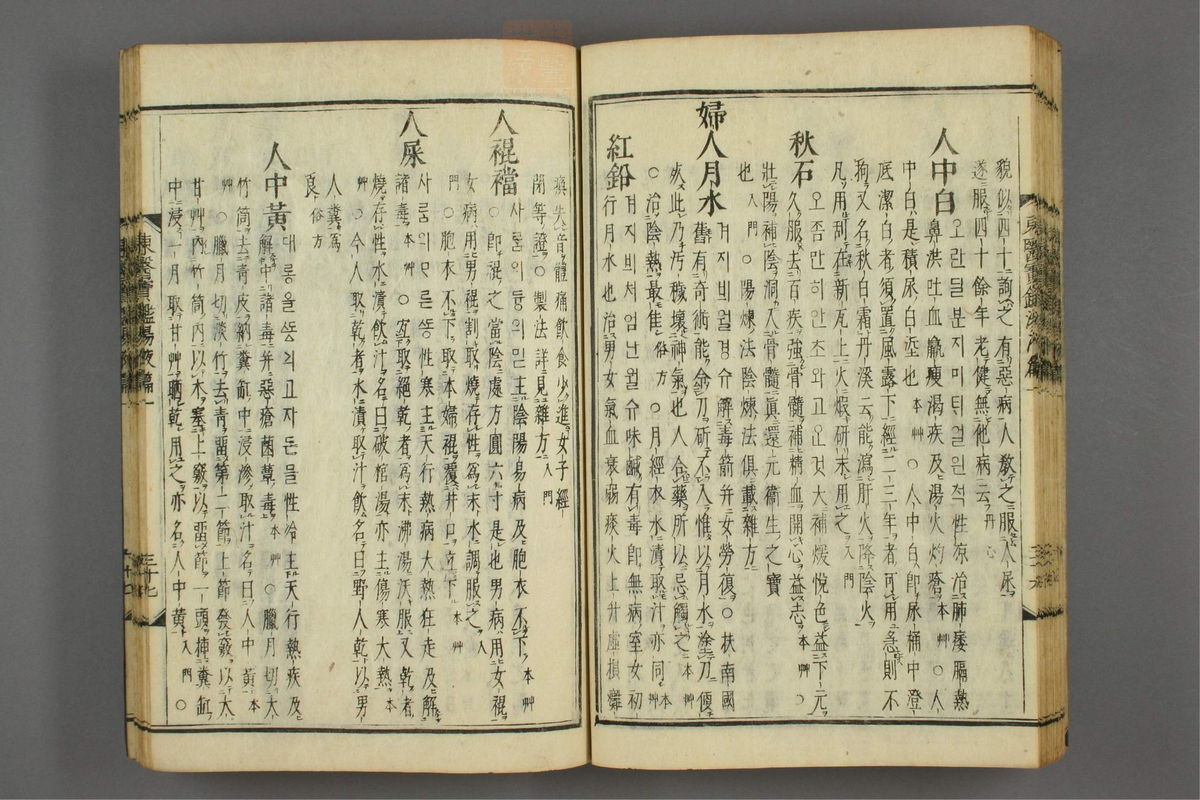 貌似四十詢之有惡病人敎之服人尿
遂服四十餘年老健無他病云丹心
人中白 오란믿분지미티얼읜적性凉治肺痿膈熱
鼻洪吐血羸瘦渴疾及湯火灼瘡本艸○人
中白是積尿白垽也本艸○人中白即尿桶中澄
底潔白者須置風露下經二三年者可用急則不
拘又名秋白霜丹溪云能瀉肝火降陰火
凡用刮在新瓦上火煆硏末用之入門
秋石 오좀만히안초와고은것大補煖悅色益下元
久服去百疾強骨髓補精血開心益志本艸○
壯陽補陰洞入骨髓眞還元衛生之寶
也入門○陽煉法陰煉法俱載雜方
婦人月水 겨지비월경슈解毒箭幷女勞復○扶南國
舊有奇術能令刀斫不入惟以月水塗刀便
死此乃汚穢壞神氣也人合藥所以忌觸之本艸
○治陰熱最佳俗方○月經水水漬取汁亦同本艸
紅鉛 겨지비처엄난월슈味鹹有毒即無病室女初
行月水也治男女氣血衰弱痰火上升虛損癱
瘓失音體痛飮食少進女子經
閉等證○製法詳見雜方入門
人裩襠 사롬의듕의믿主陰陽易病及胞衣不下本艸
○即裩之當陰處方圓六寸是也男病用女裩
女病用男裩割取燒存性爲末水調服之入
門○胞衣不下取本婦裩覆井口立下本艸
人屎 사롬의믈똥性寒主天行熱病大熱狂走及解
諸毒本艸○宜取絶乾者爲末沸湯沃服又乾者
燒存性水漬飮汁名曰破棺湯亦主傷寒大熱本
艸○今人取乾者水漬取汁飮名曰野人乾以男
人糞爲
良俗方
人中黃 대롱을똥긔고자든믈性冷主天行熱疾及
解中諸毒幷惡瘡菌蕈毒本艸○臘月切大
竹筒去靑皮納糞缸中浸滲取汁名曰人中黃本
艸○臘月切淡竹去靑留第二節上節發竅以大
甘艸內竹筒內以木塞上竅以留節一頭揷糞缸
中浸一月取甘艸晒乾用之亦名人中黃入門○
東醫寶鑑湯液篇一
三十七